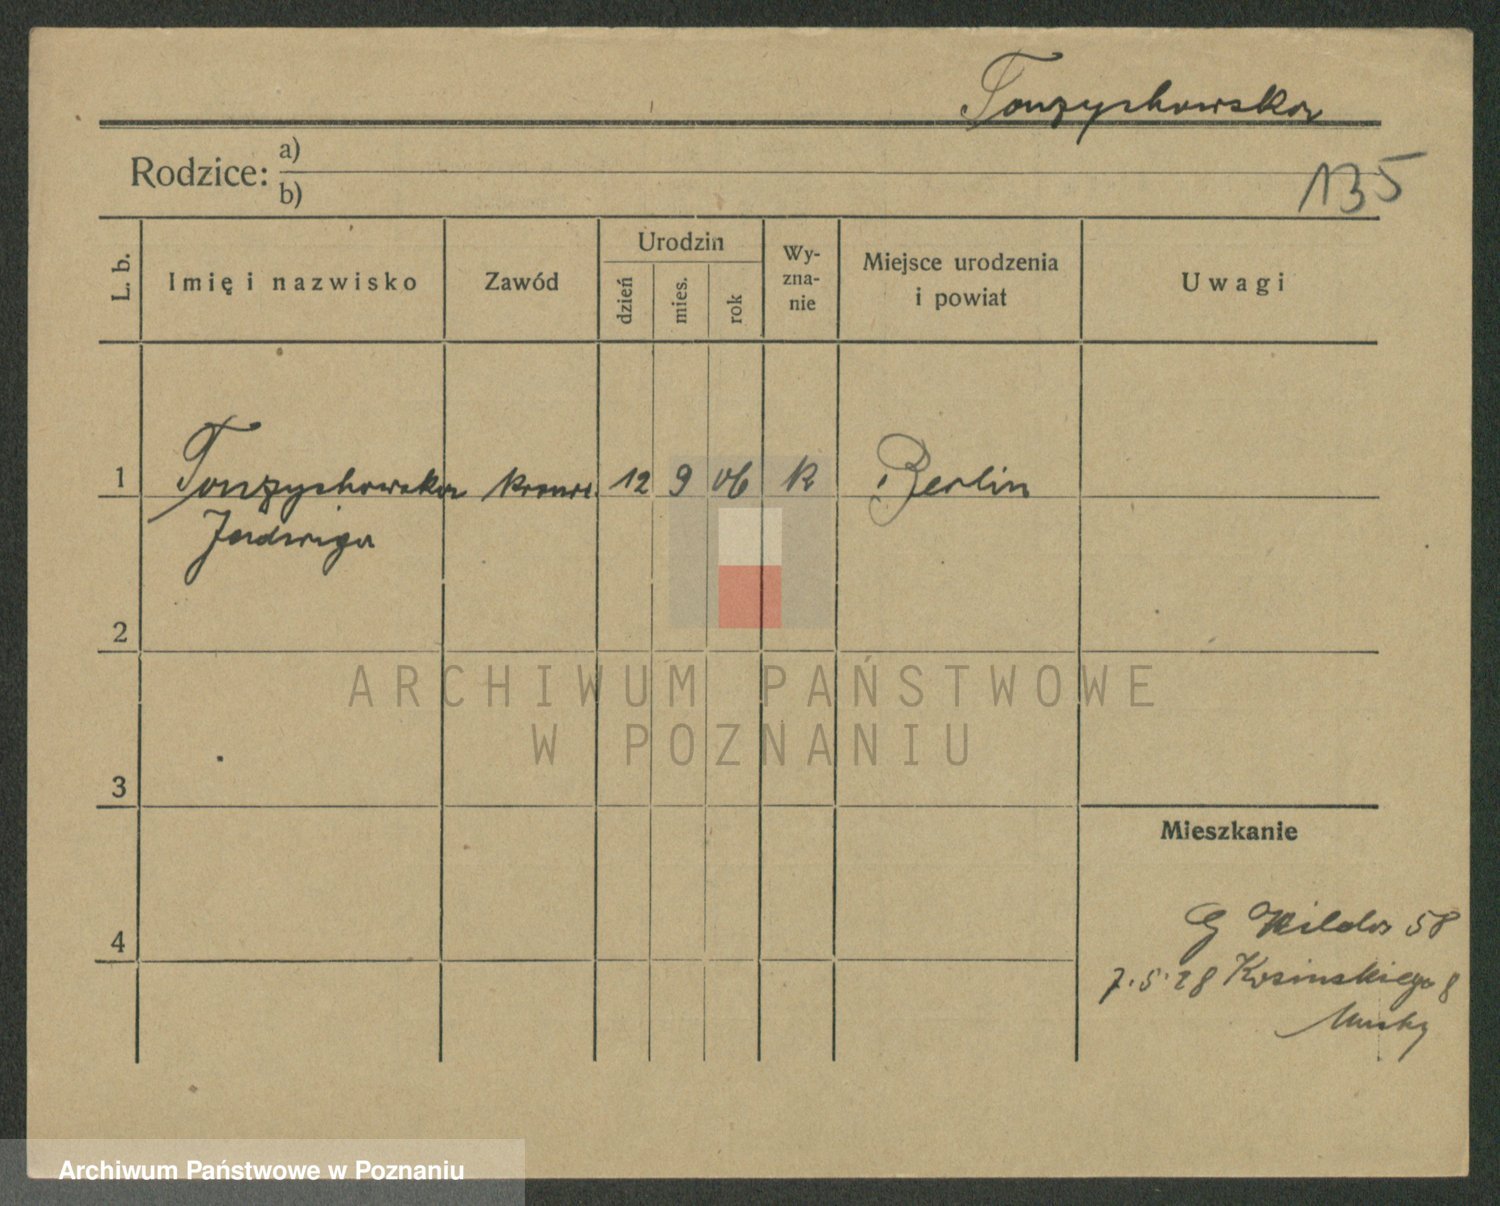 Tonzychowska
Rodzice: a)
b)
135
L. b.
Imię i nazwisko
Zawód
Urodzin
dzień
mies.
rok
Wy-
zna-
nie
Miejsce urodzenia
i powiat
Uwagi
1
Tonzychowska
12 9 06 k Berlin
Jadwiga
2
ARCHIWUM PAŃSTWOWE
W POZNANIU
3
Mieszkanie
4
G Wilda 58
7.5.28 Kosinskiego 8
Archiwum Państwowe w Poznaniu